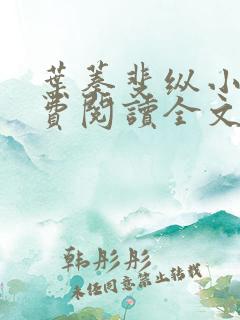 葉蓁斐纵小
費閱讀全文
韩彤彤
未经同意禁止转载